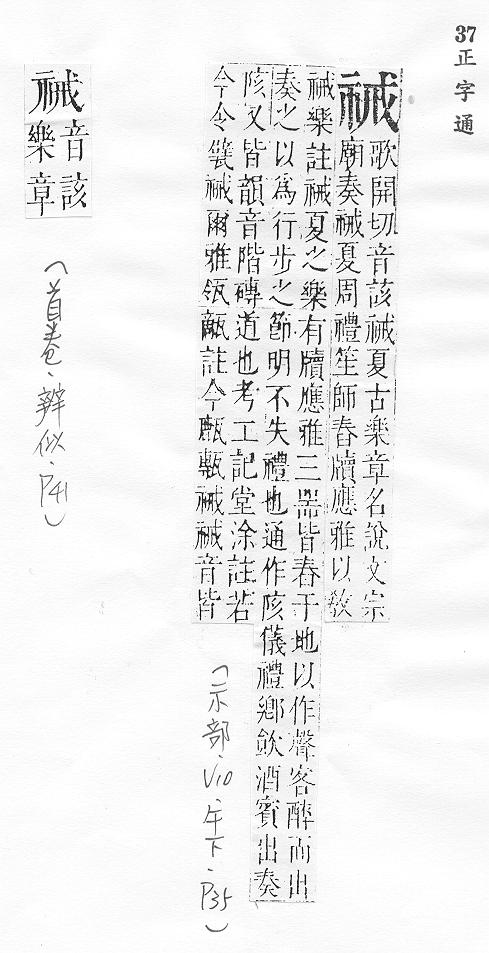 37正字通
祴
歌開切音該祴夏古樂章名說文宗
廟奏祴夏周禮笙師舂牘應雅以敎
祴樂註祴夏之樂有牘應雅三器皆舂于地以作聲客醉而出
奏之以爲行步之節明不失禮也通作陔儀禮鄉飮酒賓出奏
陔又皆韻音階磚道也考工記堂涂註若
今令甓祴爾雅瓴甋註今㼾甎祴祴音皆
(示部、V10、午下、P35)
祴
音該
樂章
(首卷、辨似、P41)